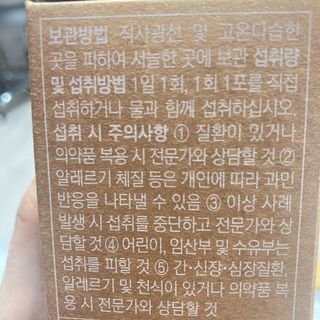 보관방법 직사광선 및 고온다습한
곳을 피하여 서늘한 곳에 보관 섭취량
및 섭취방법 1일 1회, 1회 1포를 직접
섭취하거나 물과 함께 섭취하십시오.
섭취 시 주의사항 ① 질환이 있거나
의약품 복용 시 전문가와 상담할 것 ②
알레르기 체질 등은 개인에 따라 과민
반응을 나타낼 수 있음 ③ 이상 사례
발생 시 섭취를 중단하고 전문가와 상
담할 것 ④ 어린이, 임산부 및 수유부는
섭취를 피할 것 ⑤ 간·신장·심장질환,
알레르기 및 천식이 있거나 의약품 복
용 시 전문가와 상담할 것